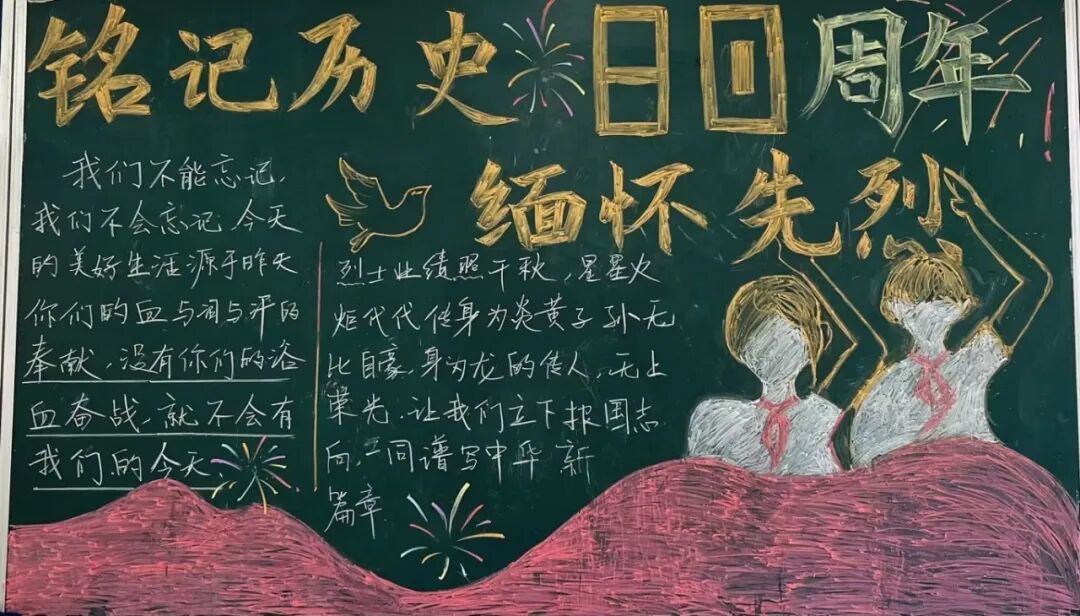 铭记历史 80周年
缅怀先烈
我们不能忘记,
我们不会忘记 今天
的美好生活源于昨天
你们的血与泪与汗的
奉献,没有你们的浴
血奋战,就不会有
我们的今天
烈士业绩照千秋,星星火
炬代代传身为炎黄子孙无
比自豪,身为龙的传人,无上
荣光.让我们立下报国志
向,一同谱写中华新
篇章